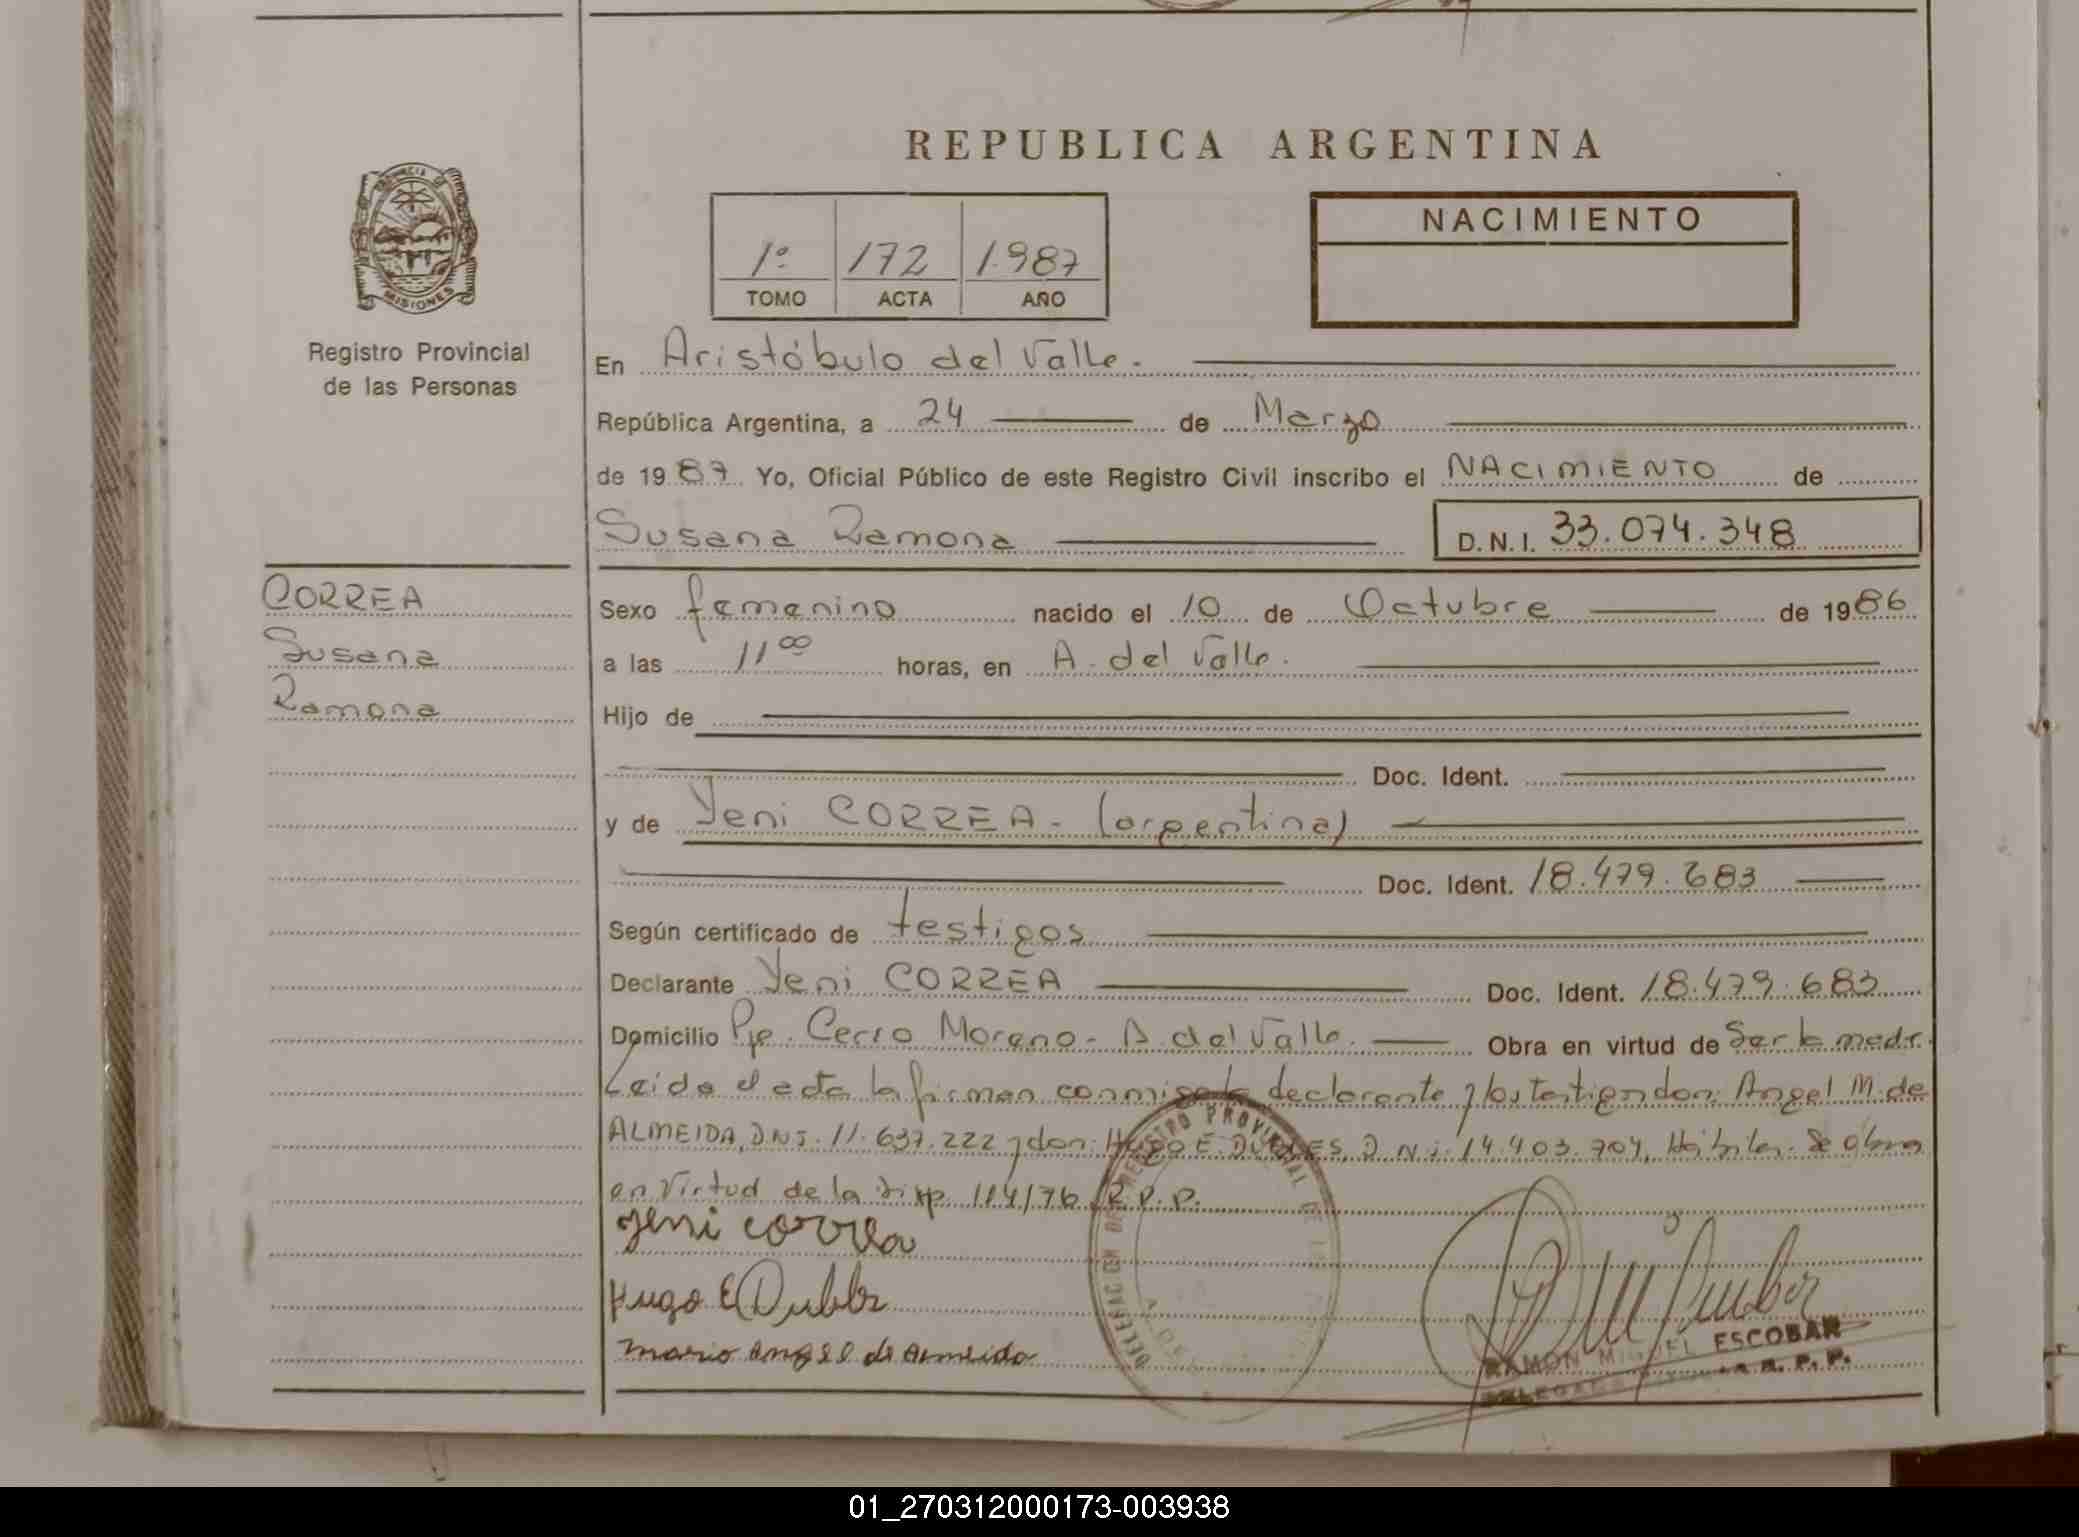 REPUBLICA ARGENTINA
PROVINCIA DE
MISIONES
Registro Provincial
de las Personas
NACIMIENTO
1º 172 1.987
TOMO ACTA AÑO
En Aristóbulo del Valle.
República Argentina, a 24 de Marzo
de 1987. Yo, Oficial Público de este Registro Civil inscribo el NACIMIENTO de
Susana Ramona D.N.I. 33.074.348
CORREA
Susana
Ramona
Sexo femenino nacido el 10 de Octubre de 1986
a las 11 00 horas, en A. del Valle.
Hijo de
Doc. Ident.
y de Yeni CORREA - (argentina)
Doc. Ident. 18.479.683
Según certificado de testigos
Declarante Yeni CORREA Doc. Ident. 18.479.683
Domicilio Pje. Cerro Moreno - A. del Valle. Obra en virtud de Ser la madre.
Leida el acta la firman conmigo la declarante y los testigos don: Angel M. de
ALMEIDA, D.N.I. 11.637.222 y don: HUGO E. D.N.I. 14.403.704, Hábiles. Se obra
en virtud de la Disp. 114/76 R.P.P.
yeni correa
Hugo E
mario angel de almeida
DELEGACION DEL REGISTRO PROVINCIAL DE
RAMON MIGUEL ESCOBAR
R. P. P.
01_270312000173-003938